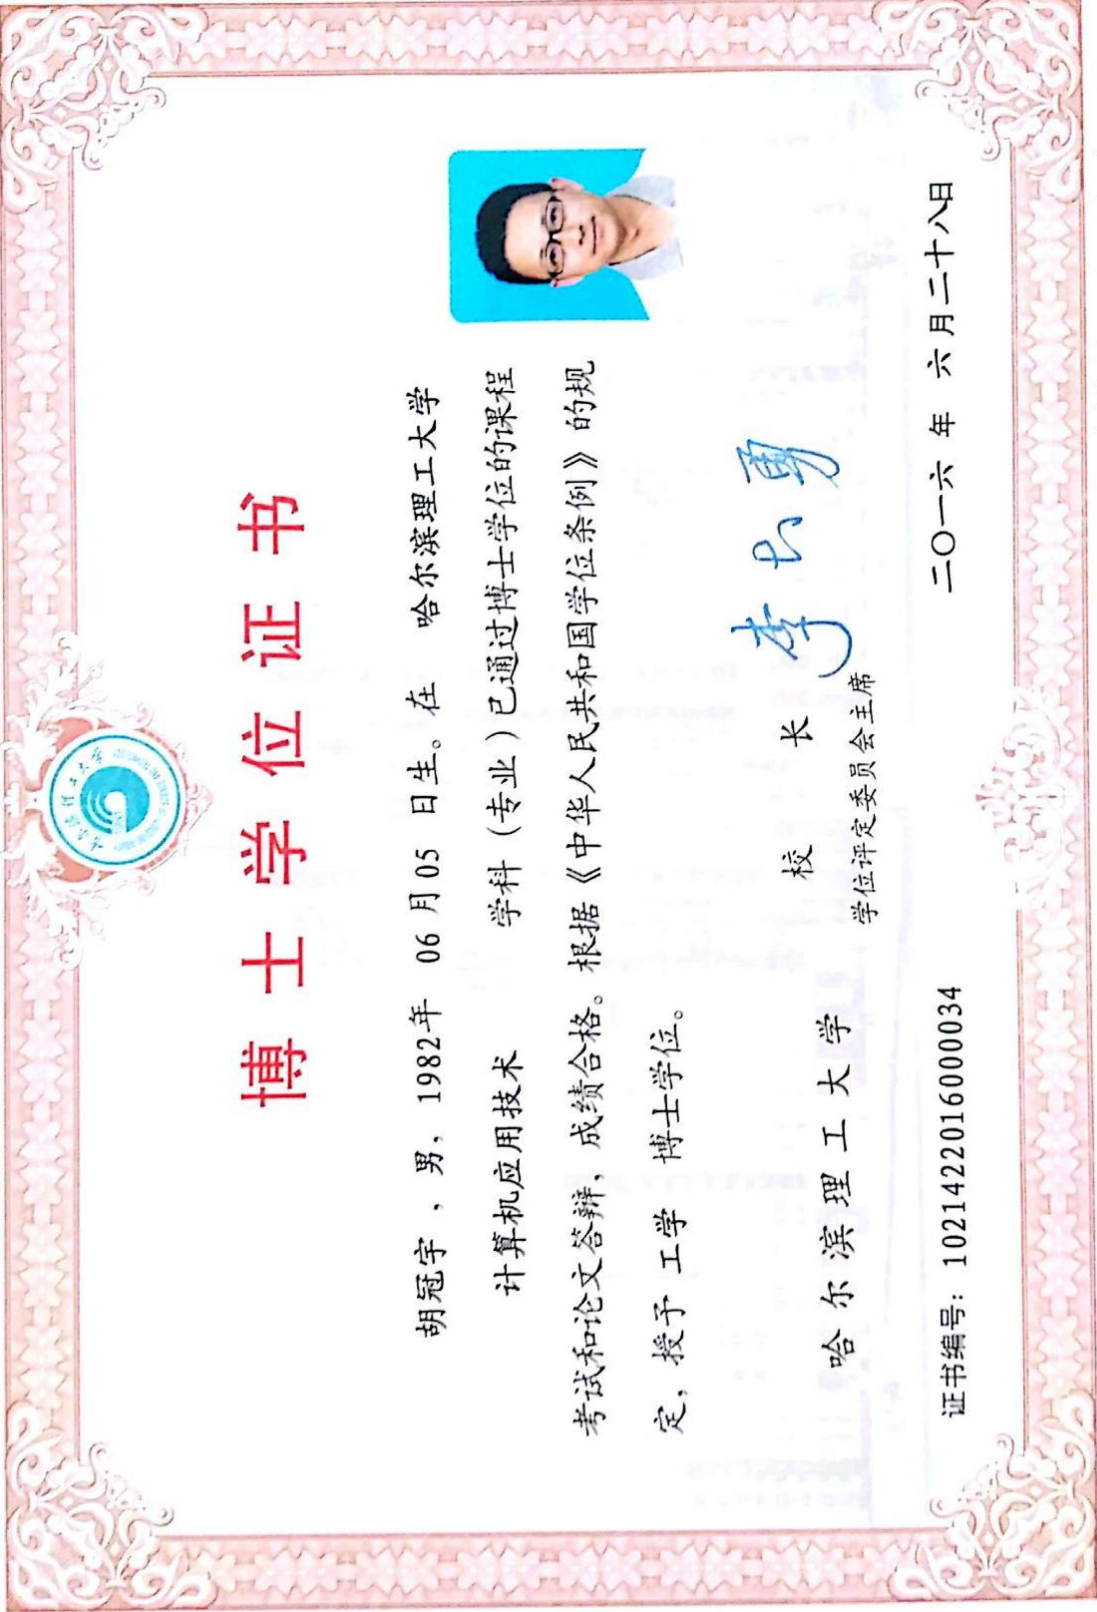 哈尔滨理工大学
博士学位证书
胡冠宇,男,1982年 06月05 日生。在 哈尔滨理工大学
计算机应用技术 学科(专业)已通过博士学位的课程
考试和论文答辩,成绩合格。根据《中华人民共和国学位条例》的规
定,授予 工学 博士学位。
哈尔滨理工大学 校长 李大勇
学位评定委员会主席
证书编号:1021422016000034 二〇一六年 六月二十八日